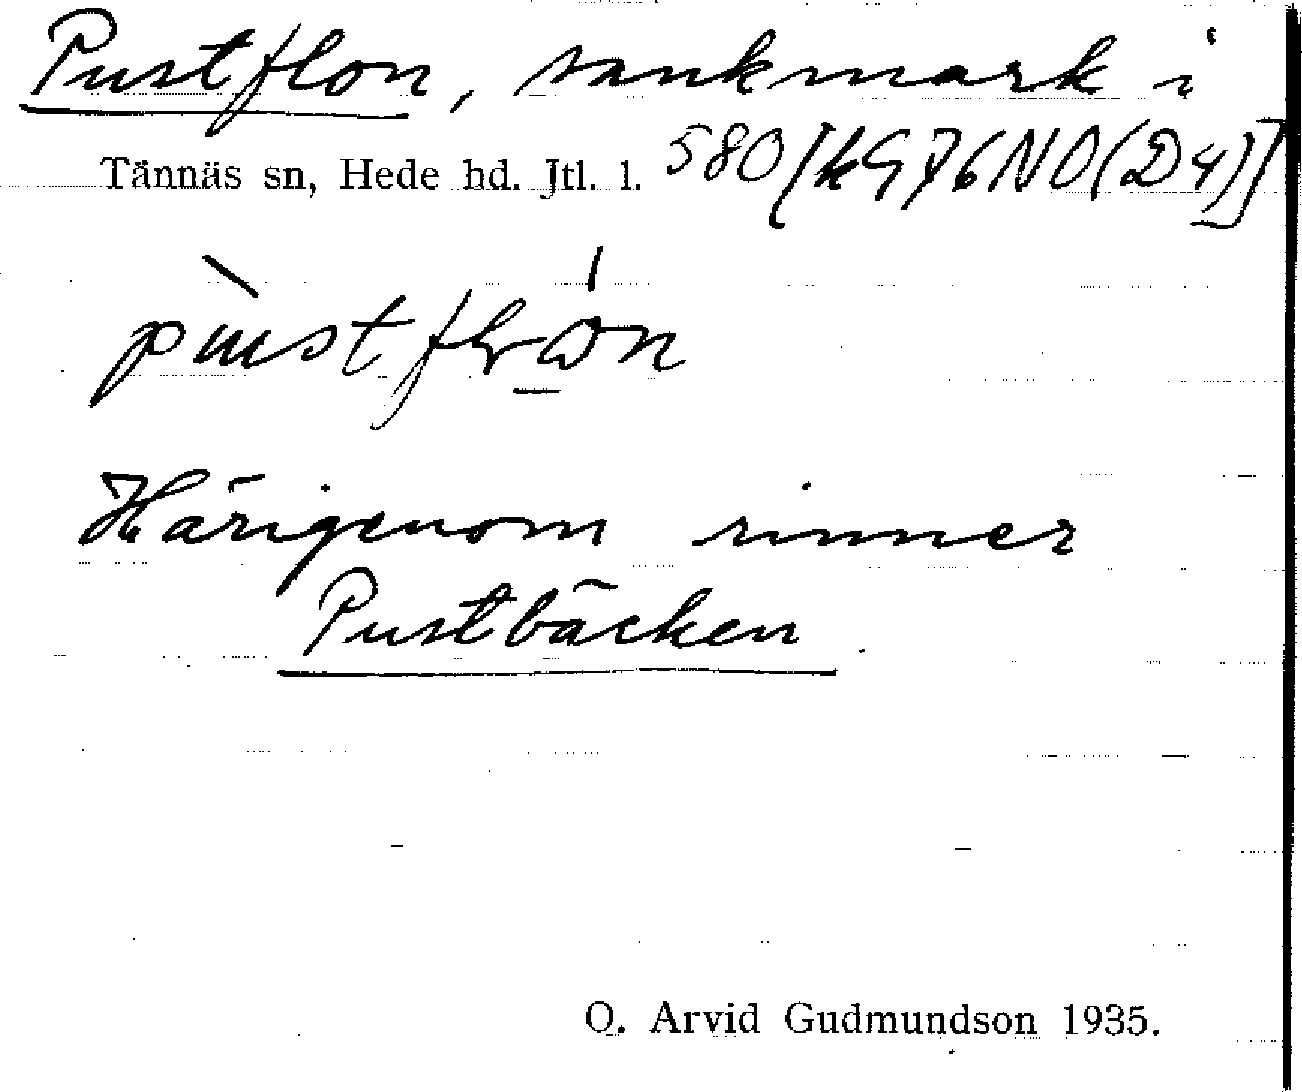 Pustflon, sankmark i
Tännäs sn, Hede hd. Jtl. l. 580 [kg 76 NO (D4)]
Härigenom rinner
Pustbäcken
O. Arvid Gudmundson 1935.